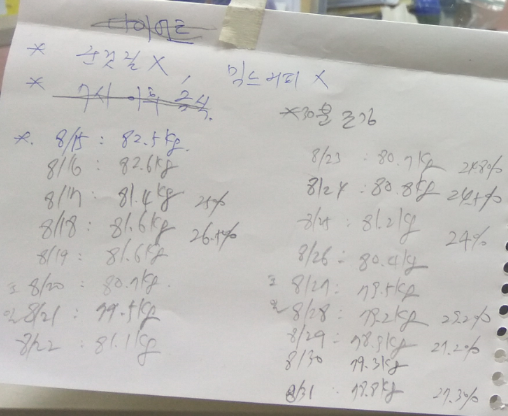 다이어트
* 군것질 X, 믹스커피 X
*
*. 8/15 : 82.5kg
8/16 : 82.6kg
8/17 : 81.4kg
8/18 : 81.6kg 26.1%
8/19 : 81.6kg
8/20 : 80.7kg
8/21 : 79.5kg
8/22 : 81.1kg
8/23 : 80.7kg 24.8%
8/24 : 80.8kg 24.5%
8/25 : 81.2kg 24%
8/26 : 80.4kg
8/27 : 79.5kg
8/28 : 79.2kg
8/29 : 27.2%
8/30 79.3kg
8/31 : 79.8kg 27.3%